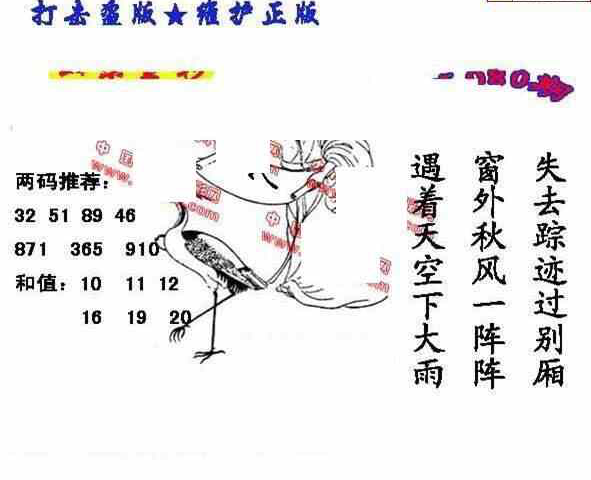 打击盗版★维护正版
两码推荐:
32 51 89 46
871 365 910
和值: 10 11 12
16 19 20
失去踪迹过别厢
窗外秋风一阵阵
遇着天空下大雨